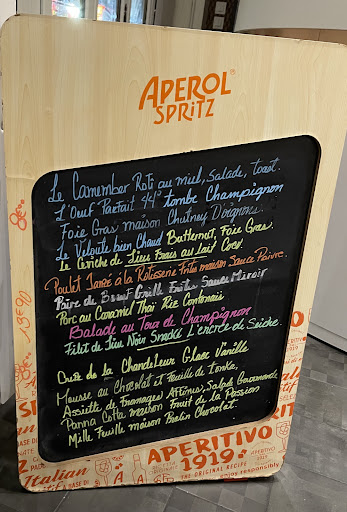 APEROL
SPRITZ
Le Camember Roti au miel, salade, toast.
L'Oeuf Parfait 64° tombe Champignon
Foie Gras maison Chutney D'oignons.
Le Velouté bien Chaud Butternut, Foie Gras.
Le Ceviche de Lieu Frais au Lait Coco.
Poulet Jaune à la Rotisserie Frites maison Sauce Poivre.
Pièce du Boeuf Grillé Frites Sauce Miroir
Porc au Caramel Thai Riz Cantonais
Balade au Tour de Champignon
Filet de Lieu Noir Snacké L'encre de Seiche.
de la Chandeleur Glace Vanille
Mousse au Chocolat et Feuille de Tonka.
Assiette de Fromages Affinés, Salade Gourmande
Panna Cotta maison Fruit de la Passion
Mille Feuille maison Praliné Chocolat.
APERITIVO
1919
THE ORIGINAL RECIPE
Enjoy responsibly
Italian